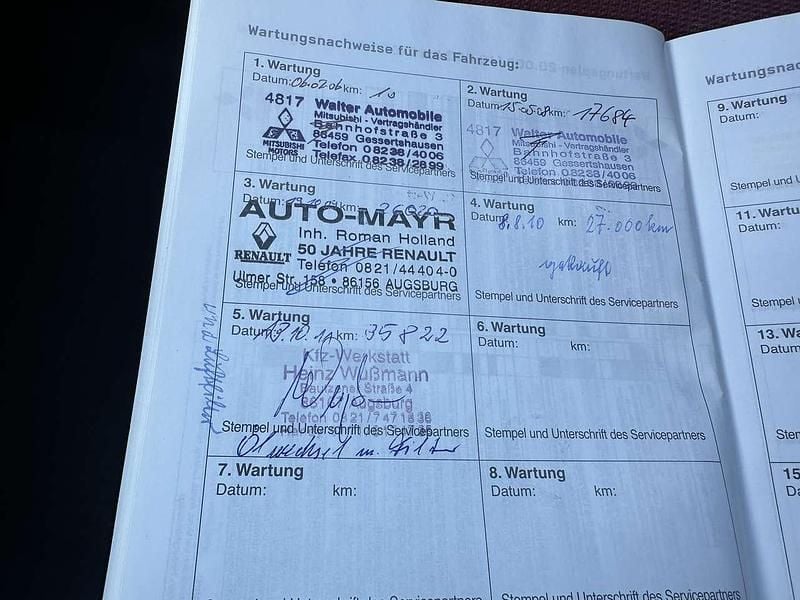 Wartungsnachweise für das Fahrzeug:
1. Wartung
Datum: 06.02.06 km: 10
4817 Walter Automobile
Mitsubishi - Vertragshändler
Bahnhofstraße 3
86459 Gessertshausen
MITSUBISHI MOTORS
Telefon 08238/4006
Telefax 08238/2899
Stempel und Unterschrift des Servicepartners
2. Wartung
Datum: 15.05.08 km: 17684
4817 Walter Automobile
Mitsubishi - Vertragshändler
Bahnhofstraße 3
86459 Gessertshausen
Telefon 08238/4006
Stempel und Unterschrift des Servicepartners
3. Wartung
Datum: km:
AUTO-MAYR
Inh. Roman Holland
50 JAHRE RENAULT
RENAULT
Telefon 0821/44404-0
Ulmer Str. 158 • 86156 AUGSBURG
Stempel und Unterschrift des Servicepartners
4. Wartung
Datum: 8.8.10 km: 27.000 km
gekauft
Stempel und Unterschrift des Servicepartners
5. Wartung
Datum: km: 35822
Kfz-Werkstatt
Heinz Wußmann
Bautzener Straße 4
Augsburg
Telefon
Stempel und Unterschrift des Servicepartners
Ölwechsel m. Filter
und Luftfilter
6. Wartung
Datum: km:
Stempel und Unterschrift des Servicepartners
7. Wartung
Datum: km:
Stempel und Unterschrift des Servicepartners
8. Wartung
Datum: km:
Stempel und Unterschrift des Servicepartners
Wartungsnac
9. Wartung
Datum:
Stempel und
11. Wartu
Datum:
Stempel u
13. Wart
Datum:
Stempel
15